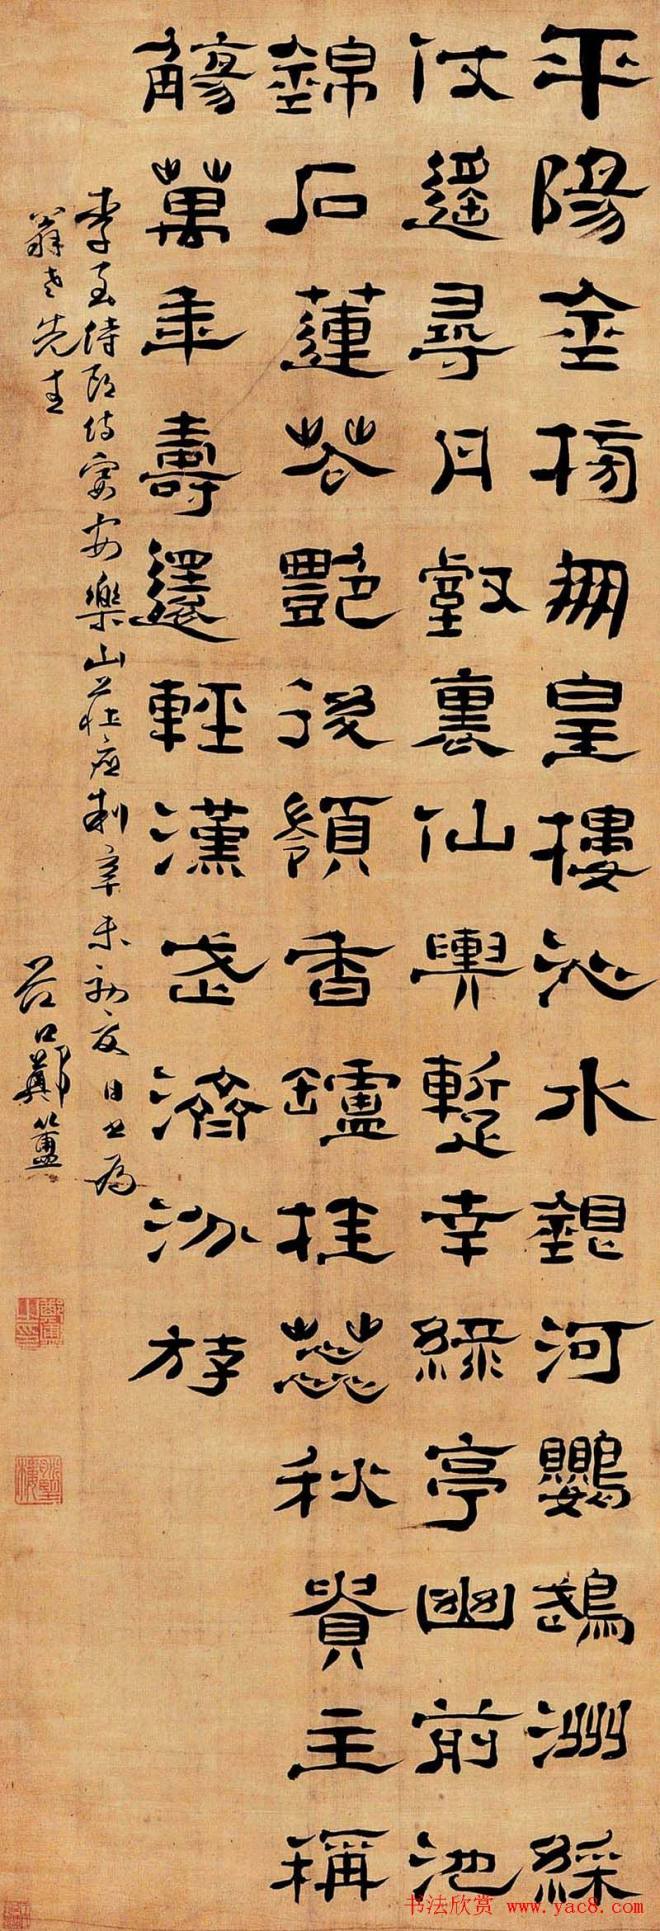 平陽金榜鳳皇樓沁水銀河鸚鵡洲綵
仗遙尋丹壑裏仙輿暫幸綠亭幽前池
錦石蓮花艷後嶺香罏桂蕊秋貴主稱
觴萬年壽還輕漢武濟汾游
李侍郎侍宴安樂山莊應制辛未初夏日書為
翁老先生
谷口鄭簠
鄭簠之印
书法欣赏 www.yac8.com